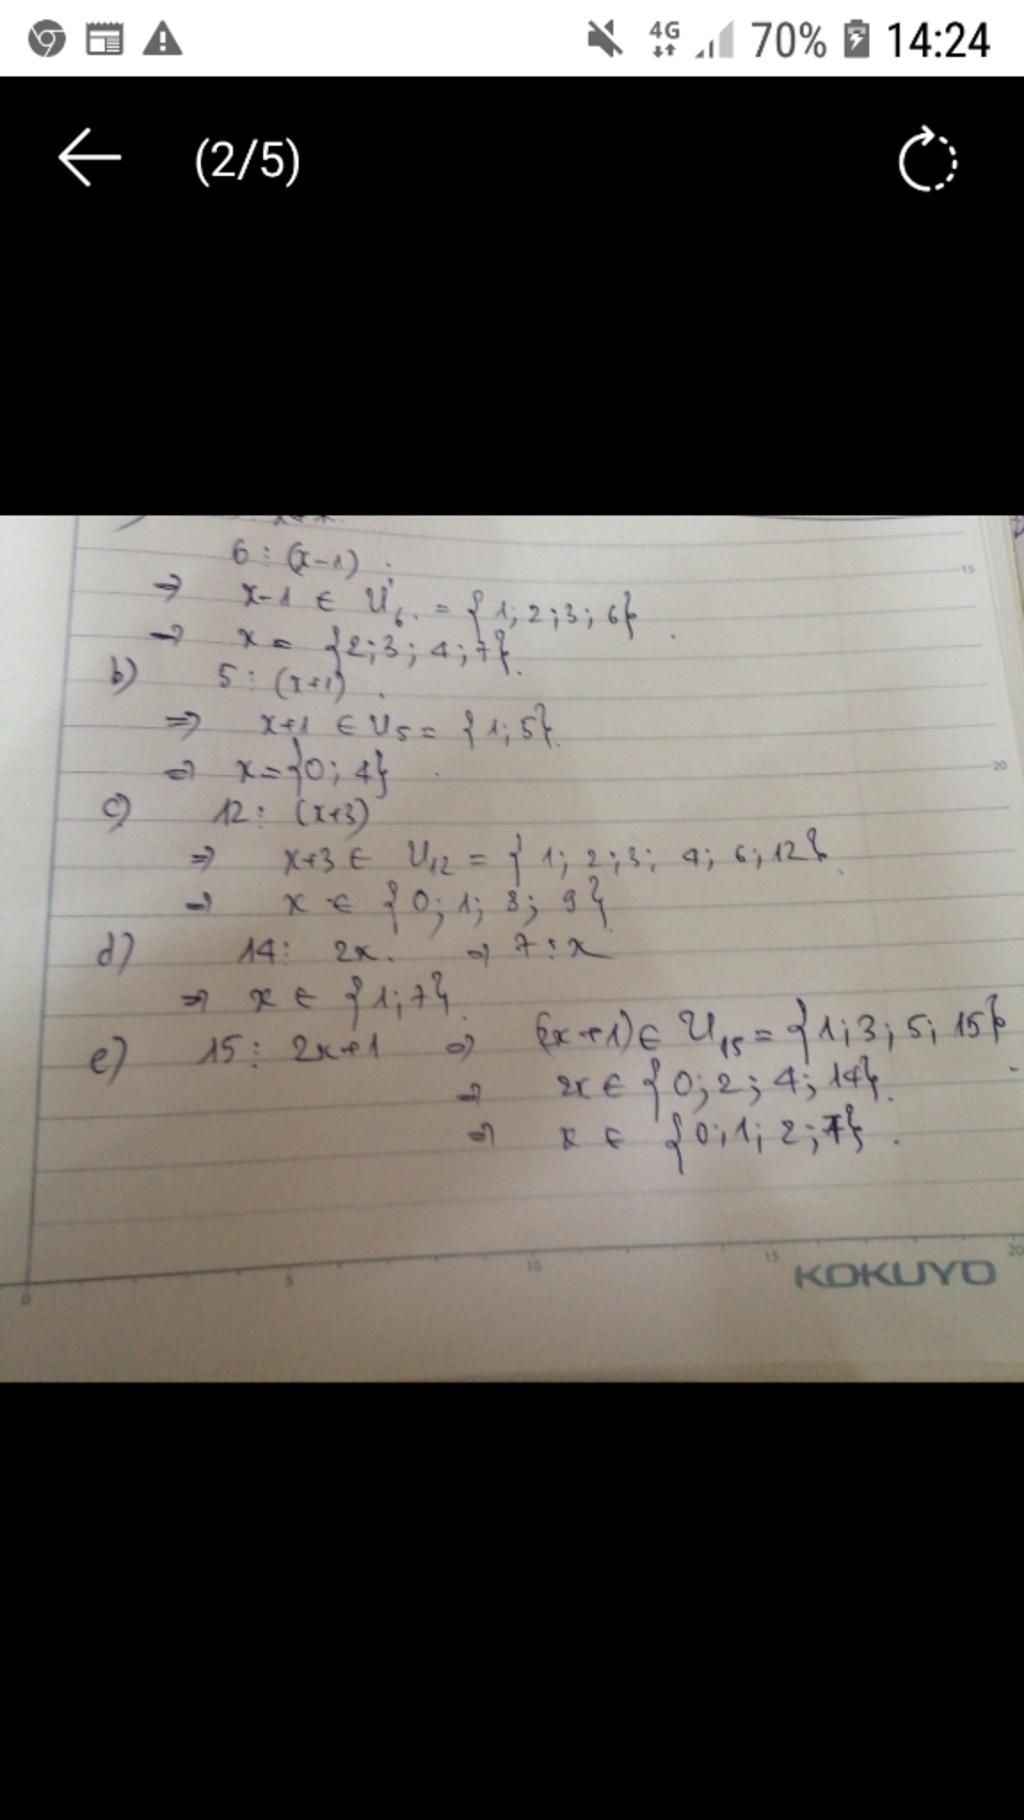 4G 70% 14:24
(2/5)
6 ⋮ (x-1).
⇒ x-1 ∈ Ư6. = {1; 2; 3; 6}.
⇒ x = {2; 3; 4; 7}.
b) 5 ⋮ (x+1).
⇒ x+1 ∈ Ư5 = {1; 5}.
⇒ x = {0; 4}.
c) 12 ⋮ (x+3)
⇒ x+3 ∈ Ư12 = {1; 2; 3; 4; 6; 12}.
⇒ x ∈ {0; 1; 3; 9}
d) 14 ⋮ 2x. ⇒ 7 ⋮ x
⇒ x ∈ {1; 7}.
e) 15 ⋮ 2x+1 ⇒ (2x+1) ∈ Ư15 = {1; 3; 5; 15}
⇒ 2x ∈ {0; 2; 4; 14}.
⇒ x ∈ {0; 1; 2; 7}.
15
20
0 5 10 15 20
KOKUYO